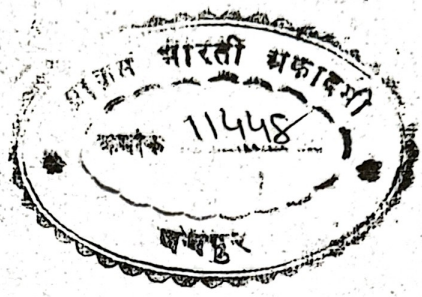 प्राकृत भारती अकादमी
क्रमांक 11448
जयपुर